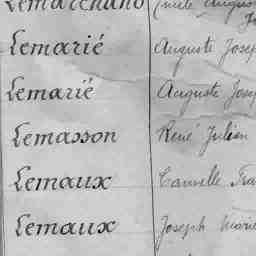 Lemarchand (mile Augus
Lemarié Auguste Josep
Lemarié Auguste Josep
Lemasson René Julien
Lemaux Camille Fra
Lemaux Joseph Marie